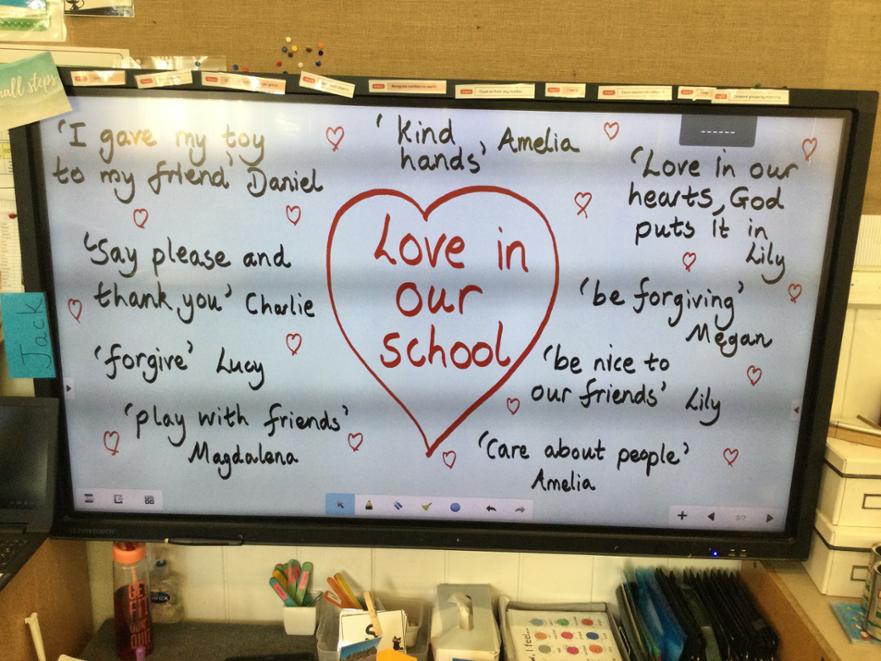 small steps
'I gave my toy
to my friend' Daniel
'Kind
hands' Amelia
'Love in our
hearts, God
puts it in
Lily
'Say please and
thank you' Charlie
Love in
our
school
'be forgiving'
Megan
Jack
'forgive' Lucy
'be nice to
our friends' Lily
'play with friends'
Magdalena
'Care about people'
Amelia